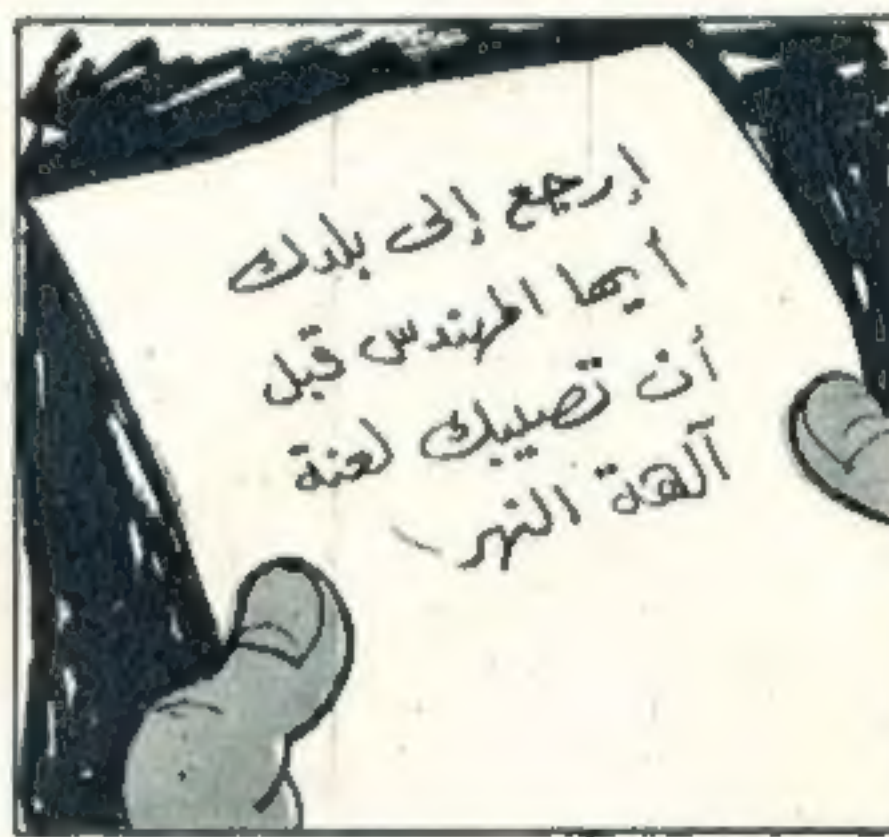 إرجع إلى بلدك
أيها المهندس قبل
أن تصيبك لعنة
آلهة النهر